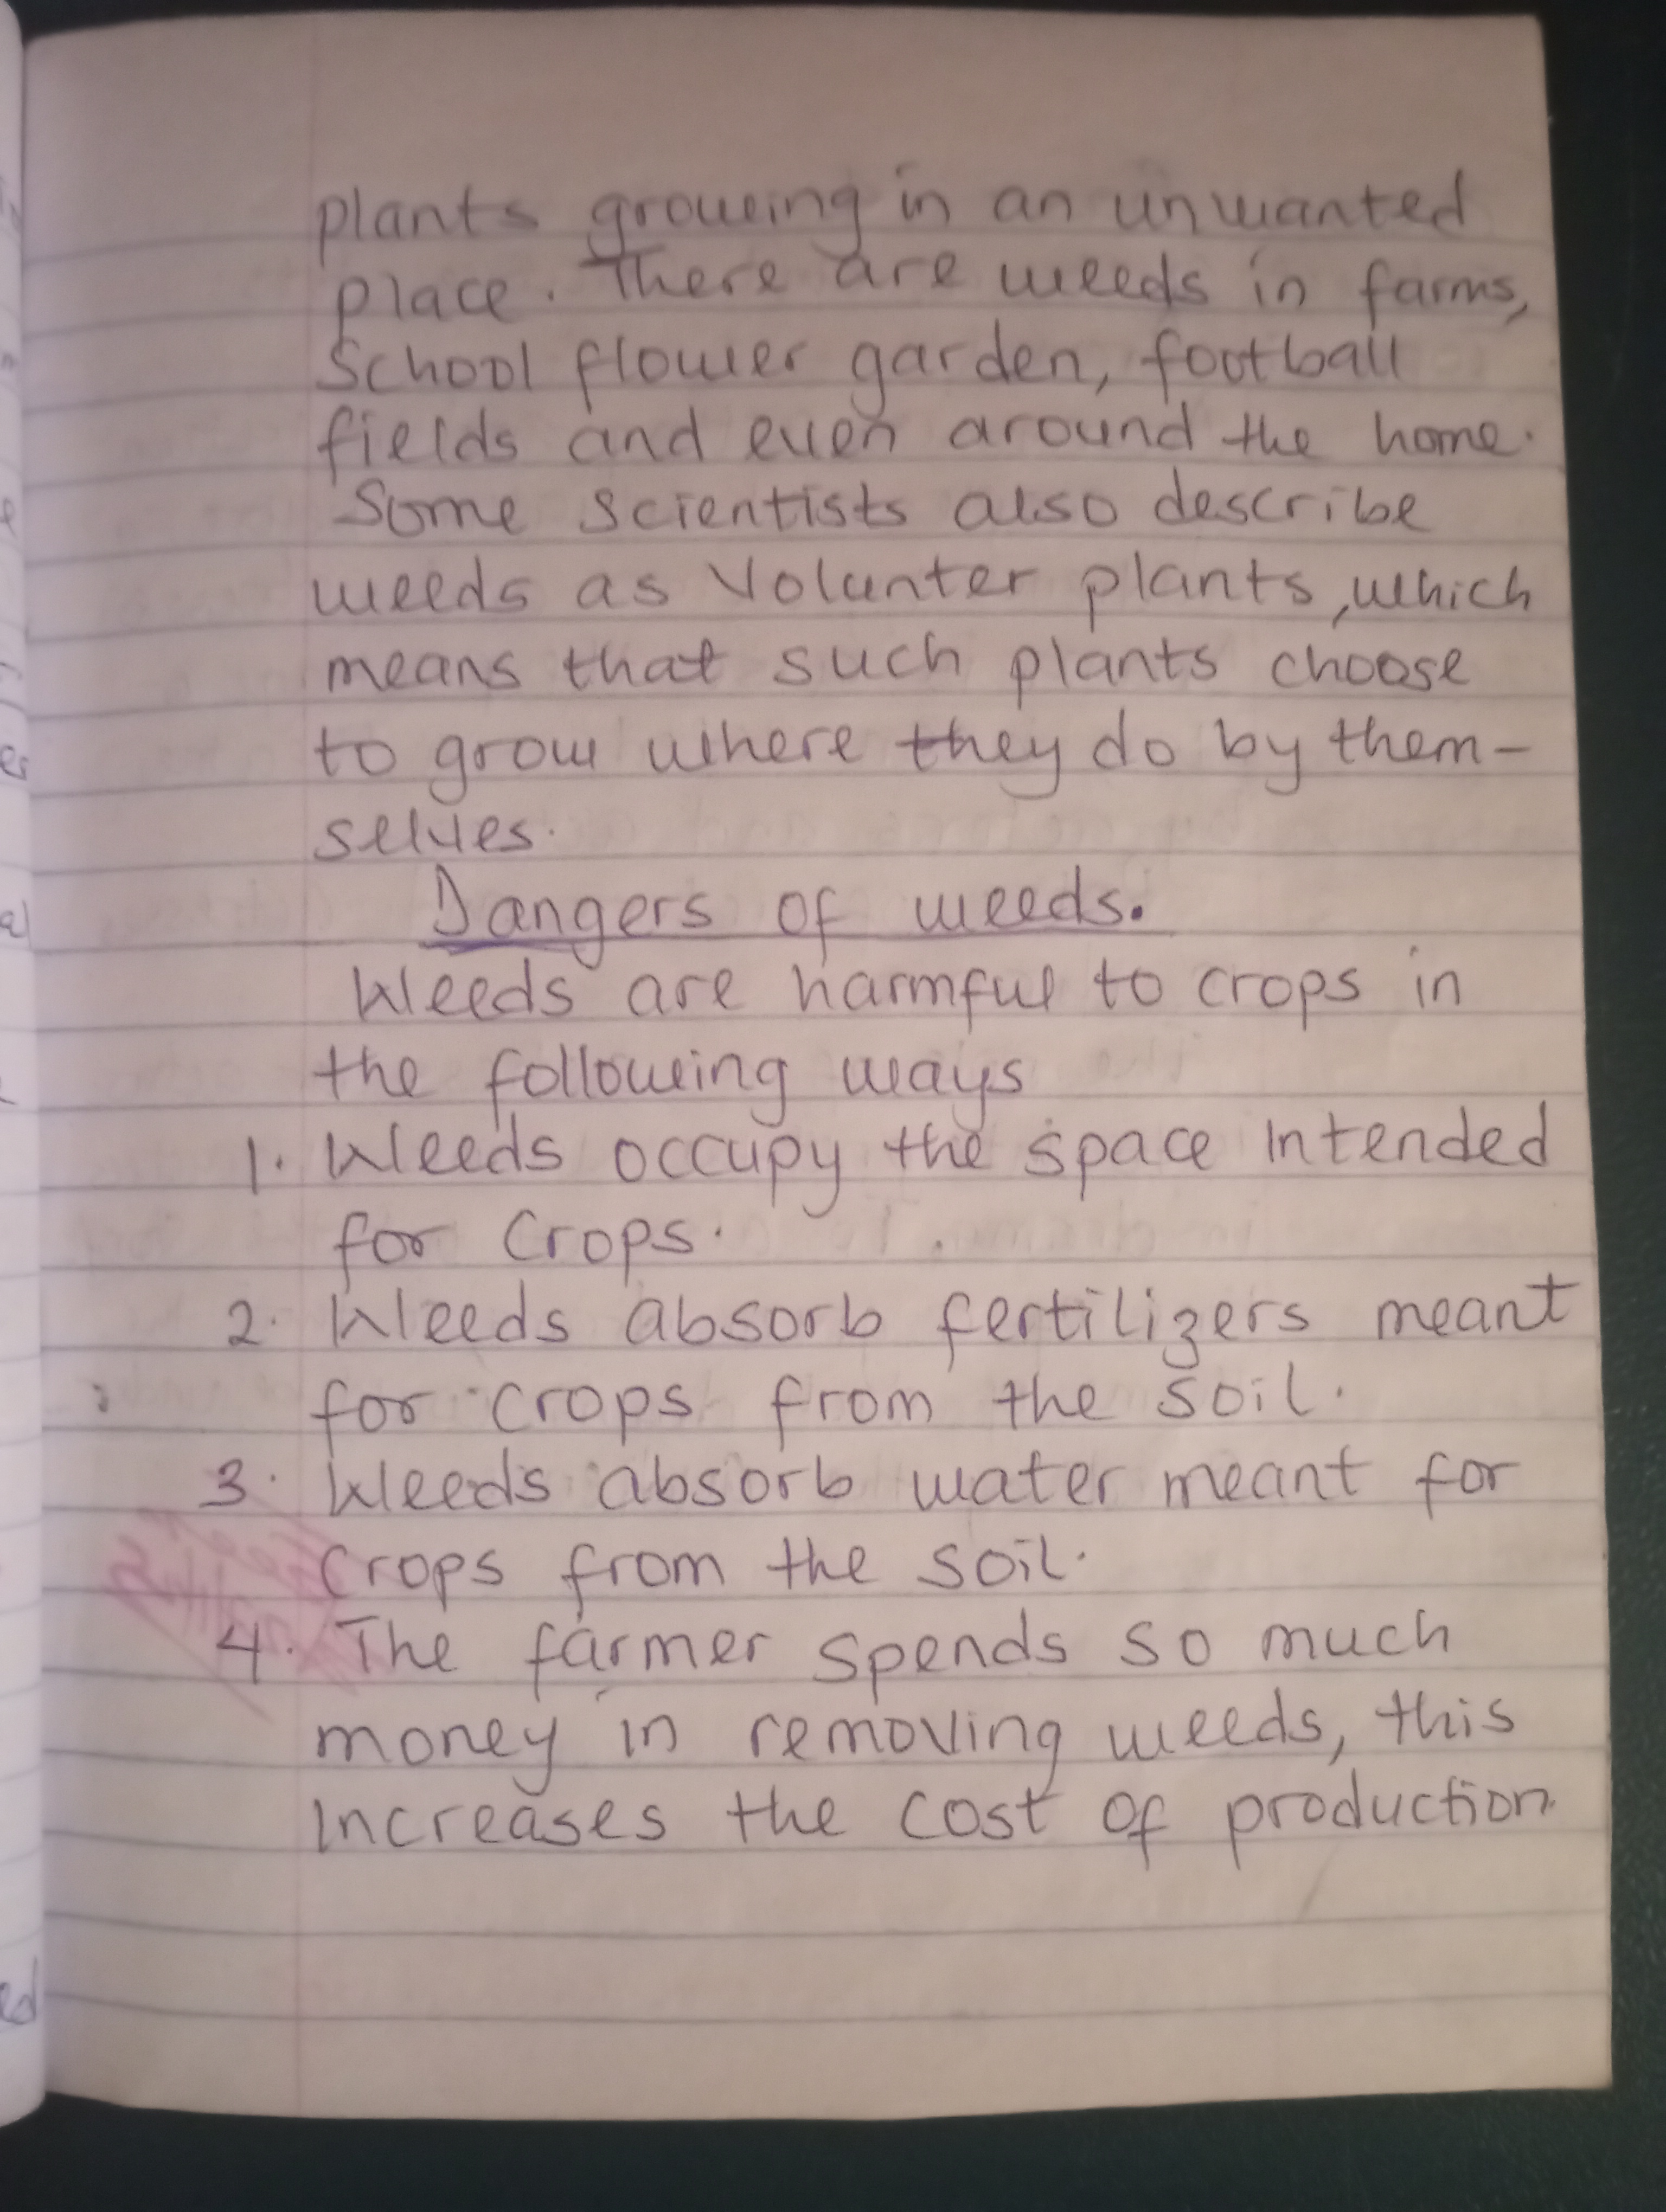 plants growing in an unwanted
place. There are weeds in farms,
School flower garden, football
fields and even around the home.
Some scientists also describe
weeds as Volunter plants, which
means that such plants choose
to grow where they do by them-
selves.
Dangers of weeds.
Weeds are harmful to crops in
the following ways
1. Weeds occupy the space intended
for Crops.
2. Weeds absorb fertilizers meant
for crops from the soil.
3. Weeds absorb water meant for
crops from the soil.
4. The farmer spends so much
money in removing weeds, this
increases the cost of production.